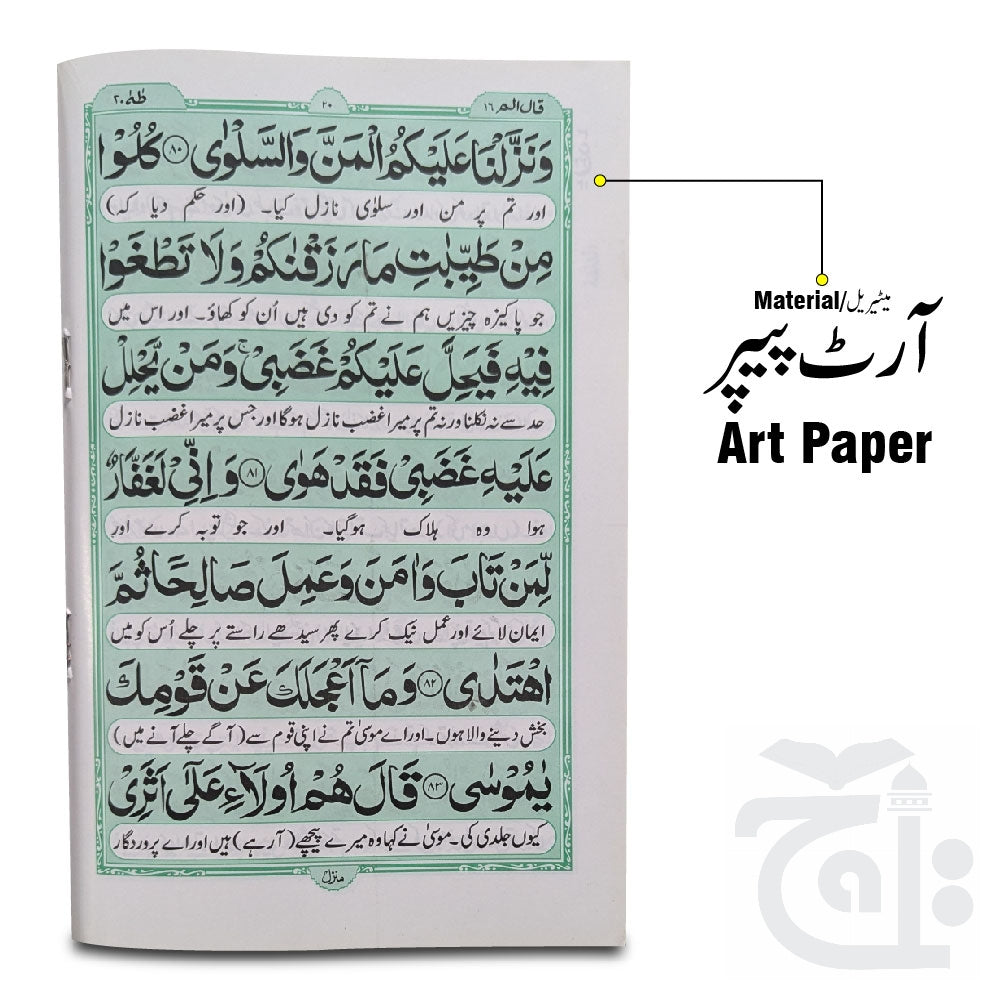 قال الم ۱۶
۲۰
طٰہٰ ۲۰
وَنَزَّلْنَا عَلَيْكُمُ الْمَنَّ وَالسَّلْوٰى ۸۰ كُلُوْا
اور تم پر من اور سلوٰی نازل کیا۔ (اور حکم دیا کہ)
مِنْ طَيِّبٰتِ مَا رَزَقْنٰكُمْ وَلَا تَطْغَوْا
جو پاکیزہ چیزیں ہم نے تم کو دی ہیں اُن کو کھاؤ۔ اور اس میں
فِيْهِ فَيَحِلَّ عَلَيْكُمْ غَضَبِيْ ۚ وَمَنْ يَّحْلِلْ
حد سے نہ نکلنا ورنہ تم پر میرا غضب نازل ہوگا اور جس پر میرا غضب نازل
عَلَيْهِ غَضَبِيْ فَقَدْ هَوٰى ۸۱ وَاِنِّيْ لَغَفَّارٌ
ہوا وہ ہلاک ہوگیا۔ اور جو توبہ کرے اور
لِّمَنْ تَابَ وَاٰمَنَ وَعَمِلَ صَالِحًا ثُمَّ
ایمان لائے اور عمل نیک کرے پھر سیدھے راستے پر چلے اُس کو میں
اهْتَدٰى ۸۲ وَمَآ اَعْجَلَكَ عَنْ قَوْمِكَ
بخش دینے والا ہوں۔ اور اے موسیٰ تم نے اپنی قوم سے (آگے چلے آنے میں)
يٰمُوْسٰى ۸۳ قَالَ هُمْ اُولَآءِ عَلٰٓى اَثَرِيْ
کیوں جلدی کی۔ موسیٰ نے کہا وہ میرے پیچھے (آ رہے) ہیں اور اے پروردگار
منزل
Material/میٹیریل
آرٹ پیپر
Art Paper